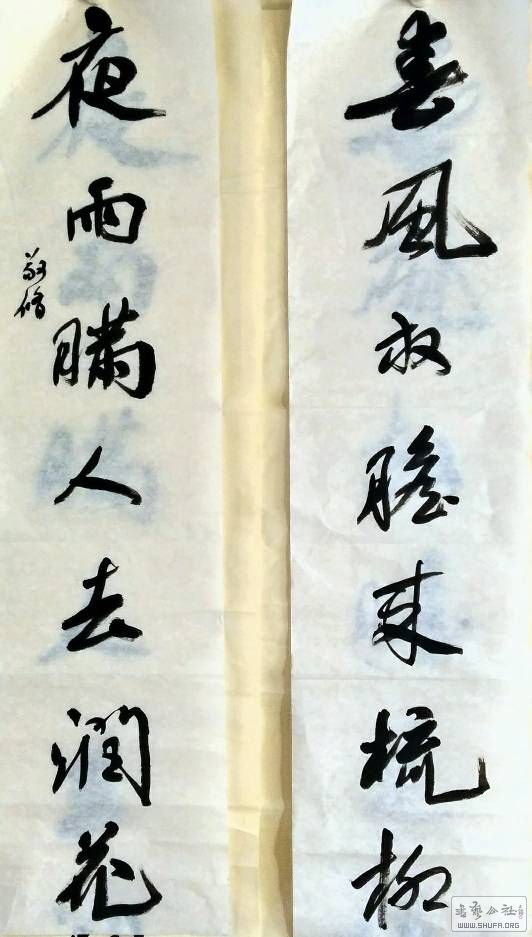 春風放膽来梳柳
夜雨瞞人去潤花
敬脩
書藝公社
WWW.SHUFA.ORG